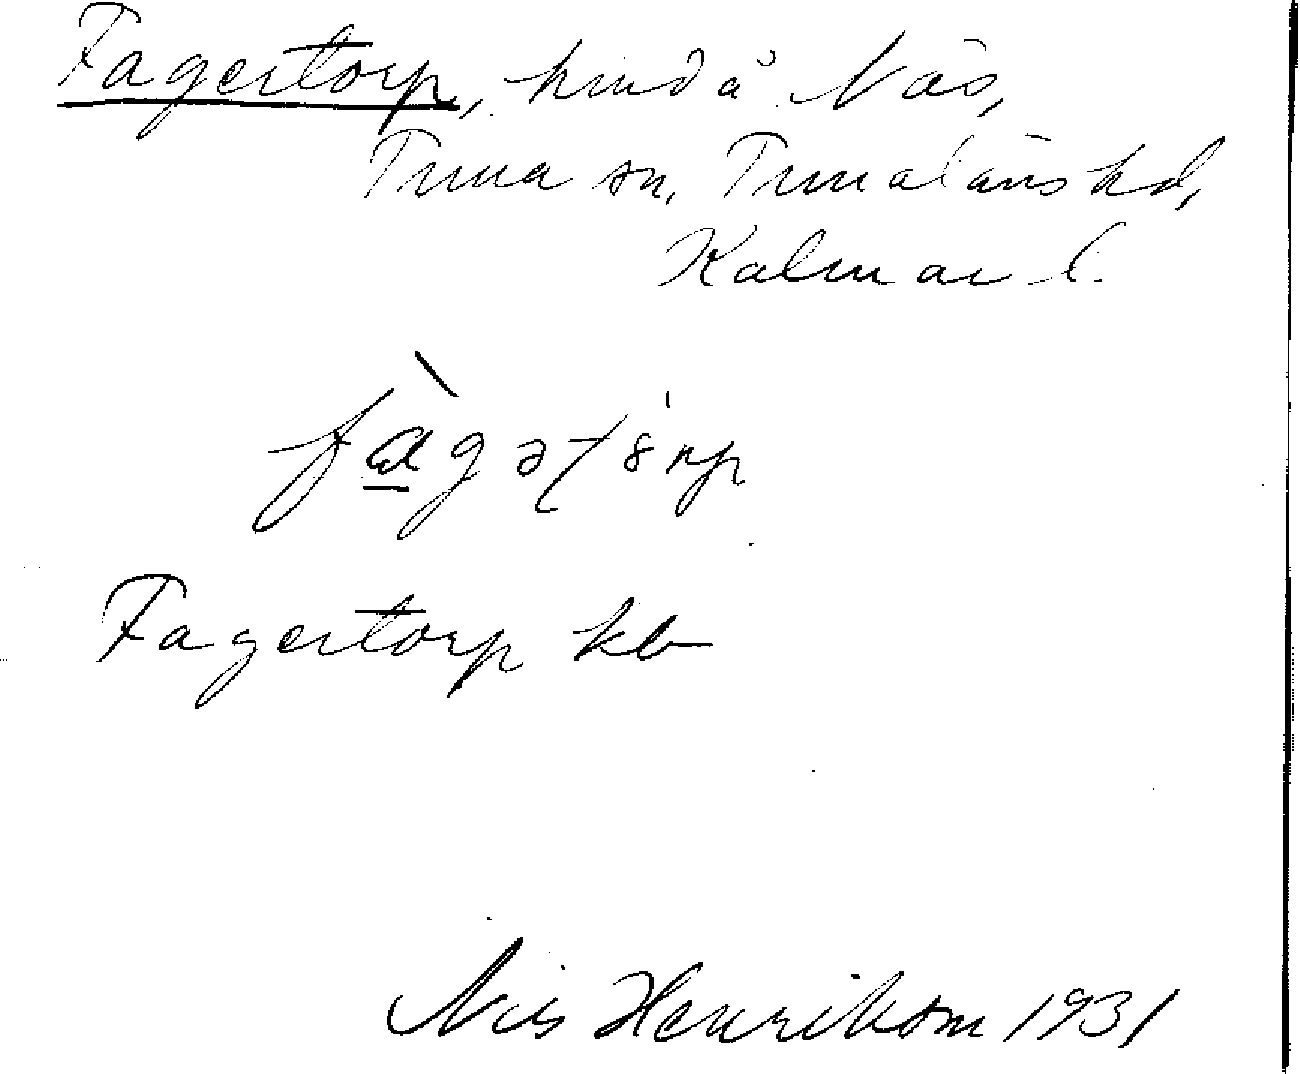 Fagertorp, hmd å Näs,
Tuna sn, Tunaläns hd,
Kalmar l.
Fagertorp kb
Nils Henrikson 1931